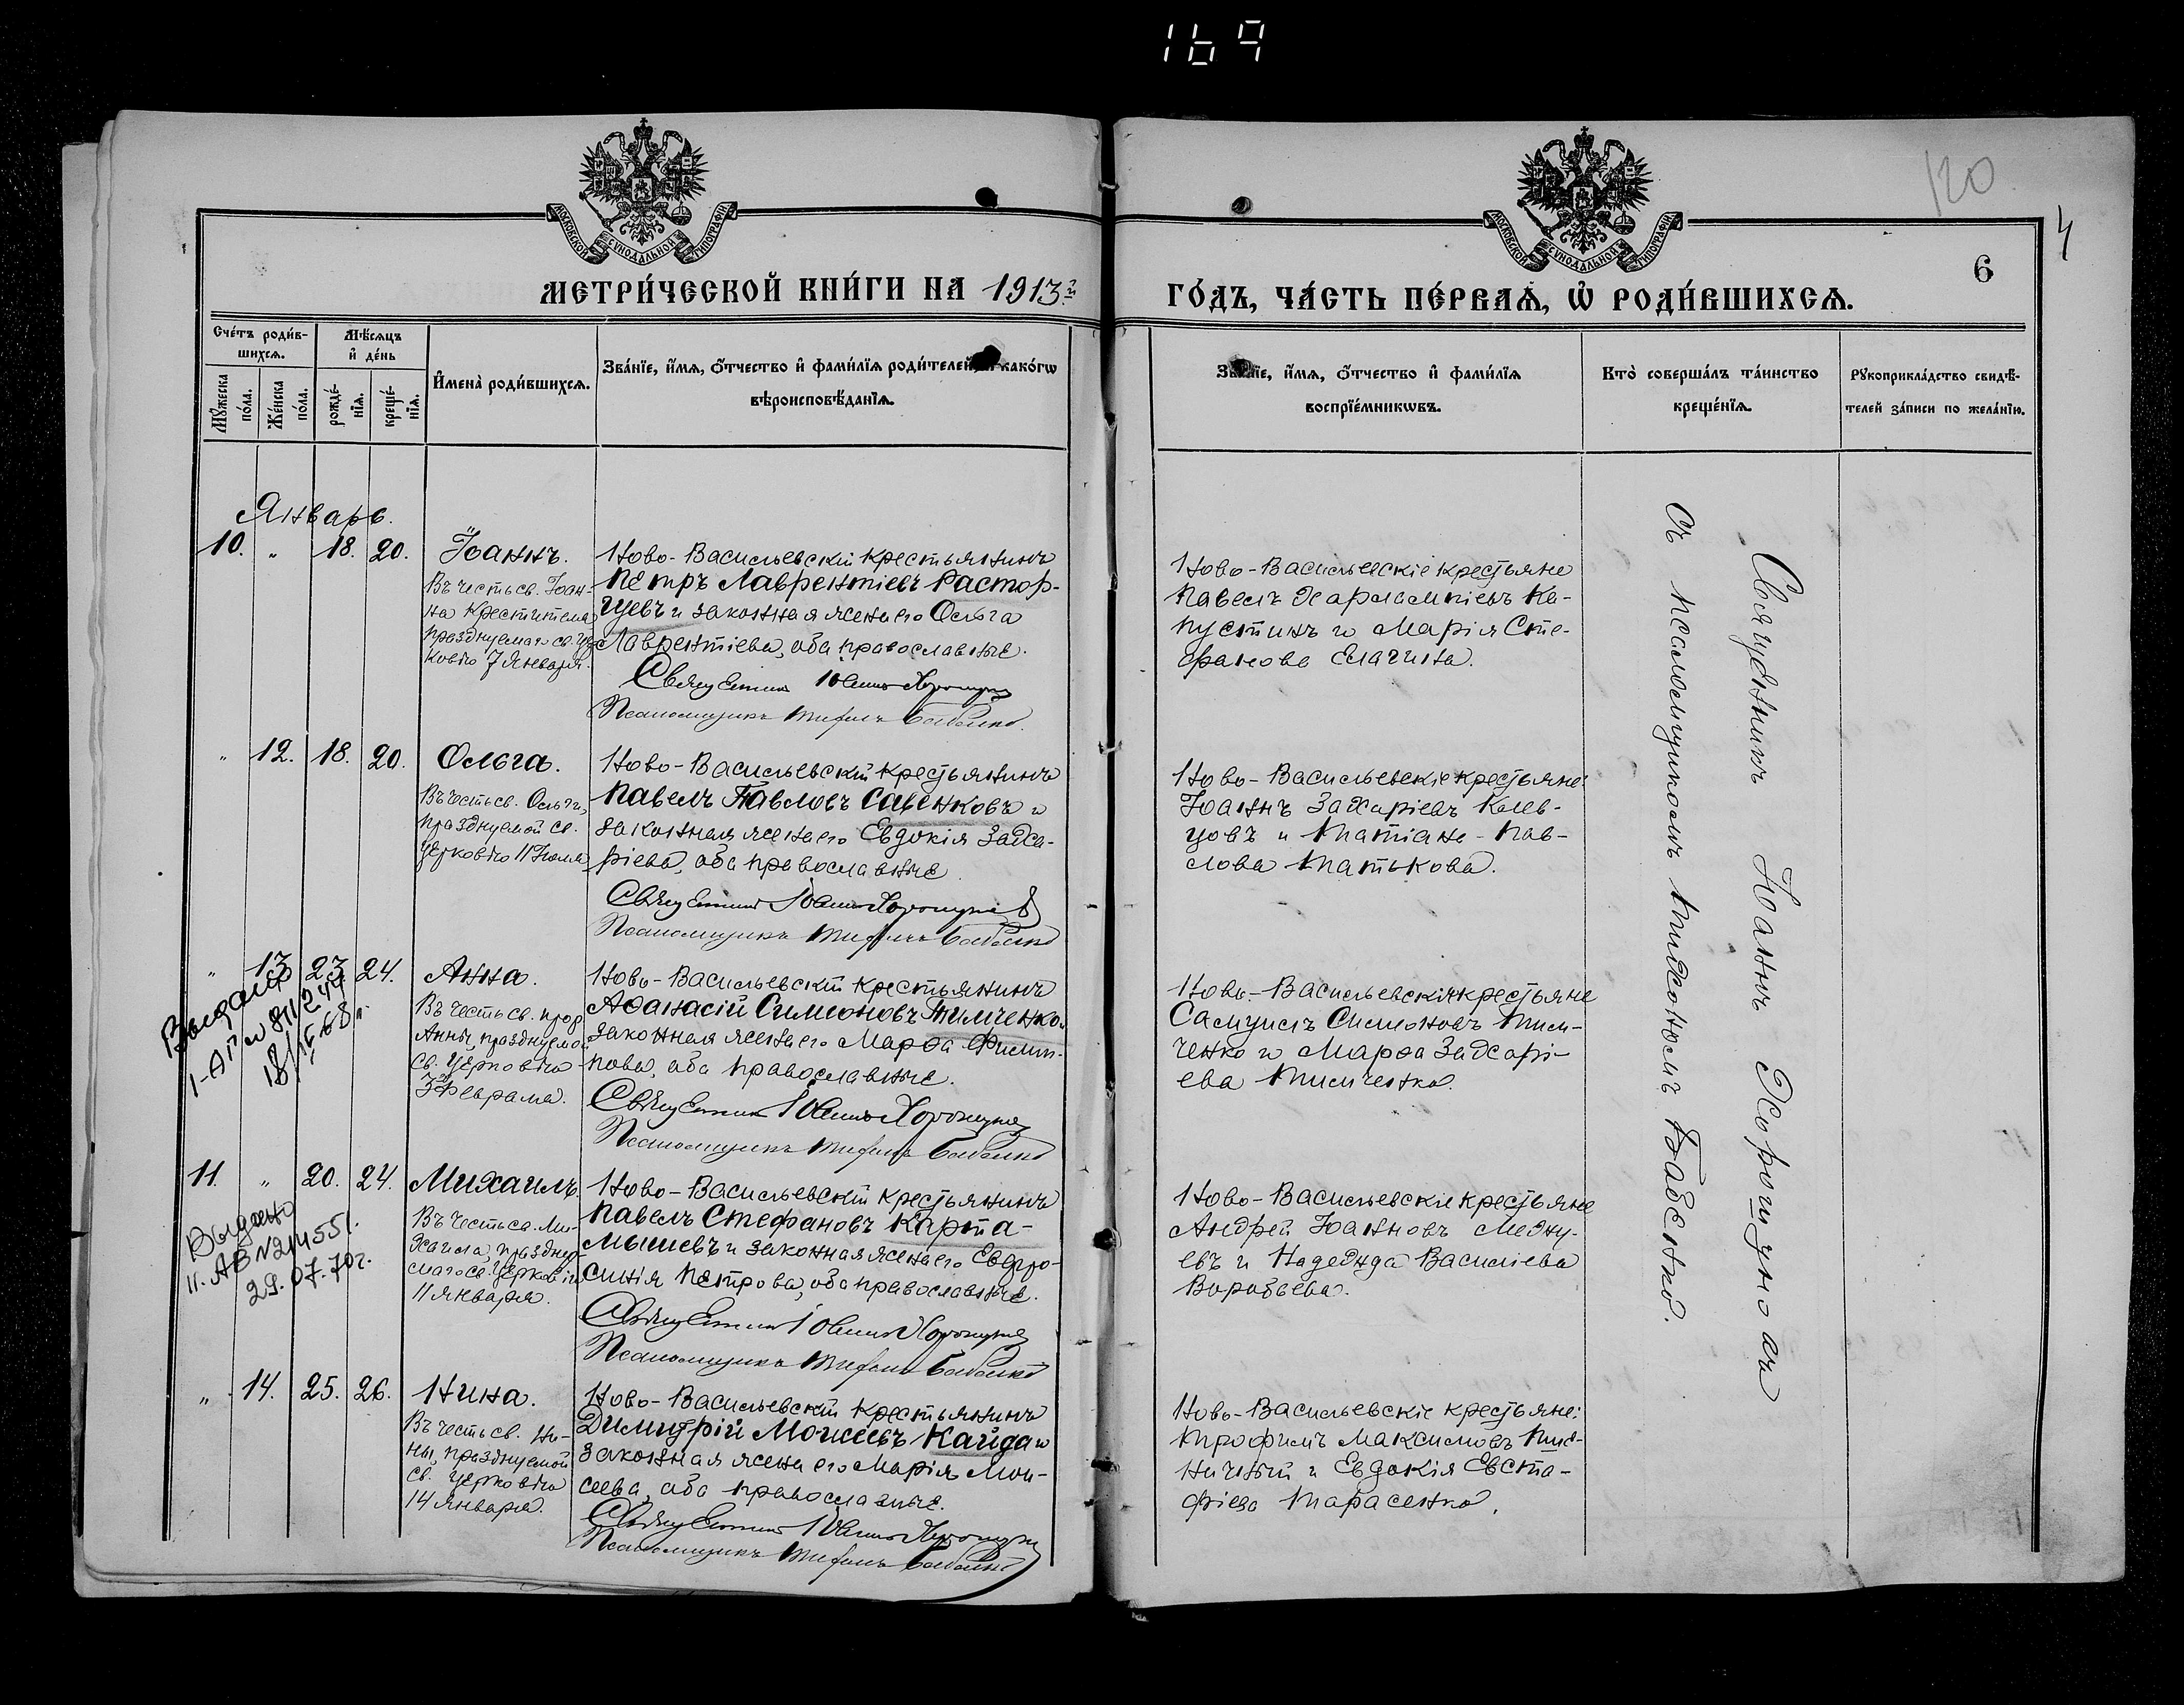 169
120
4
6
МОСКОВСКОЙ СУНОДАЛЬНОЙ ТИПОГРАФІИ
МОСКОВСКОЙ СУНОДАЛЬНОЙ ТИПОГРАФІИ
МЕТРИ́ЧЕСКОЙ КНИ́ГИ НА 1913 й
ГО́ДЪ, ЧА́СТЬ ПЕ́РВАѦ, Ѡ҆ РОДИ́ВШИХСѦ.
Счéтъ роди́в-
шихсѧ.
Мѣ́сѧцъ
и҆ де́нь
Мꙋ́жеска
по́ла.
Же́нска
по́ла.
рожде́-
нїѧ.
креще́-
нїѧ.
И҆мена̀ роди́вшихсѧ.
Зва́нїе, и҆́мѧ, ѻ҆́тчество и҆ фами́лїѧ роди́телей, и҆ како́гѡ
вѣроисповѣ́данїѧ.
Зва́нїе, и҆́мѧ, ѻ҆́тчество и҆ фами́лїѧ
воспрїе́мникѡвъ.
Кто̀ соверша́лъ та́инство
креще́нїѧ.
Рꙋкоприкла́дство свидѣ́-
телей за́писи по жела́нїю.
Январь.
10. „ 18. 20. Іоаннъ.
Въ честь св. Іоан-
на Крестителя
празднуемаго св. Цер-
ковію 7 Января.
Ново-Васильевскій крестьянинъ
Петръ Лаврентіевъ Растор-
гуевъ и законная жена его Ольга
Лаврентіева, оба православные.
Священникъ Іоаннъ Хорошунъ
Псаломщикъ Тихонъ Бабенко
Ново-Васильевскіе крестьяне
Павелъ Харлампіевъ Ка-
пустинъ и Марія Сте-
фанова Елагина.
„ 12. 18. 20. Ольга.
Въ честь св. Ольги,
празднуемой св.
Церковію 11 Іюля
Ново-Васильевскій крестьянинъ
Павелъ Павловъ Савенковъ и
законная жена его Евдокія Заха-
ріева, оба православные.
Священникъ Іоаннъ Хорошунъ
Псаломщикъ Тихонъ Бабенко
Ново-Васильевскіе крестьяне:
Іоаннъ Захаріевъ
цовъ и Татіана Пав-
лова Татькова.
„ 13. 23. 24. Анна.
Въ честь св. прор.
Анны, празднуемой
св. Церковію
3 Февраля.
Ново-Васильевскій крестьянинъ
Аѳанасій Симеоновъ Тимченко и
законная жена его Марѳа Филип-
пова, оба православные.
Священникъ Іоаннъ Хорошунъ
Псаломщикъ Тихонъ Бабенко
Выдано
Ново-Васильевскія крестьяне
Самуилъ Симоновъ Тим-
ченко и Марѳа Захарі-
ева Тимченко.
11. „ 20. 24. Михаилъ.
Въ честь св. Ми-
хаила, праздну-
маго св. Церковію
11 Января.
Ново-Васильевскій крестьянинъ
Павелъ Стефановъ Карта-
мышевъ и законная жена его Евфро-
синія Петрова, оба православные.
Священникъ Іоаннъ Хорошунъ
Псаломщикъ Тихонъ Бабенко
Выдано
II-АВ N 214551.
29.07.70г.
Ново-Васильевскіе крестьяне
Андрей Іоанновъ
евъ и Надежда Василіева
Воробьева.
„ 14. 25. 26. Нина.
Въ честь св. Ни-
ны, празднуемой
св. Церковію
14 Января.
Ново-Васильевскій крестьянинъ
Димитрій Моисеевъ Кайда и
законная жена его Марія Мои-
сеева, оба православные.
Священникъ Іоаннъ Хорошунъ
Псаломщикъ Тихонъ Бабенко
Ново-Васильевскіе крестьяне:
Трофимъ Максимовъ
и Евдокія Евста-
фіева Тарасенко.
Священникъ Іоаннъ Хорошуновъ
съ псаломщикомъ Тихономъ Бабенко.